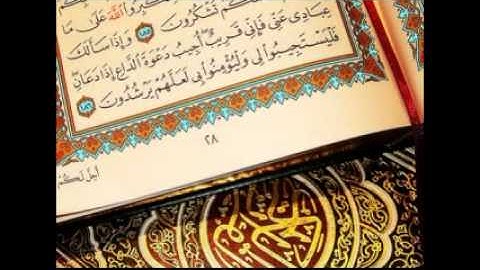 كُمْ تَشْكُرُونَ ١٨٥ وَإِذَا سَأَلَكَ
عِبَادِي عَنِّي فَإِنِّي قَرِيبٌ أُجِيبُ دَعْوَةَ الدَّاعِ إِذَا دَعَانِ
فَلْيَسْتَجِيبُوا لِي وَلْيُؤْمِنُوا بِي لَعَلَّهُمْ يَرْشُدُونَ ١٨٦
٢٨
أُحِلَّ لَكُمْ